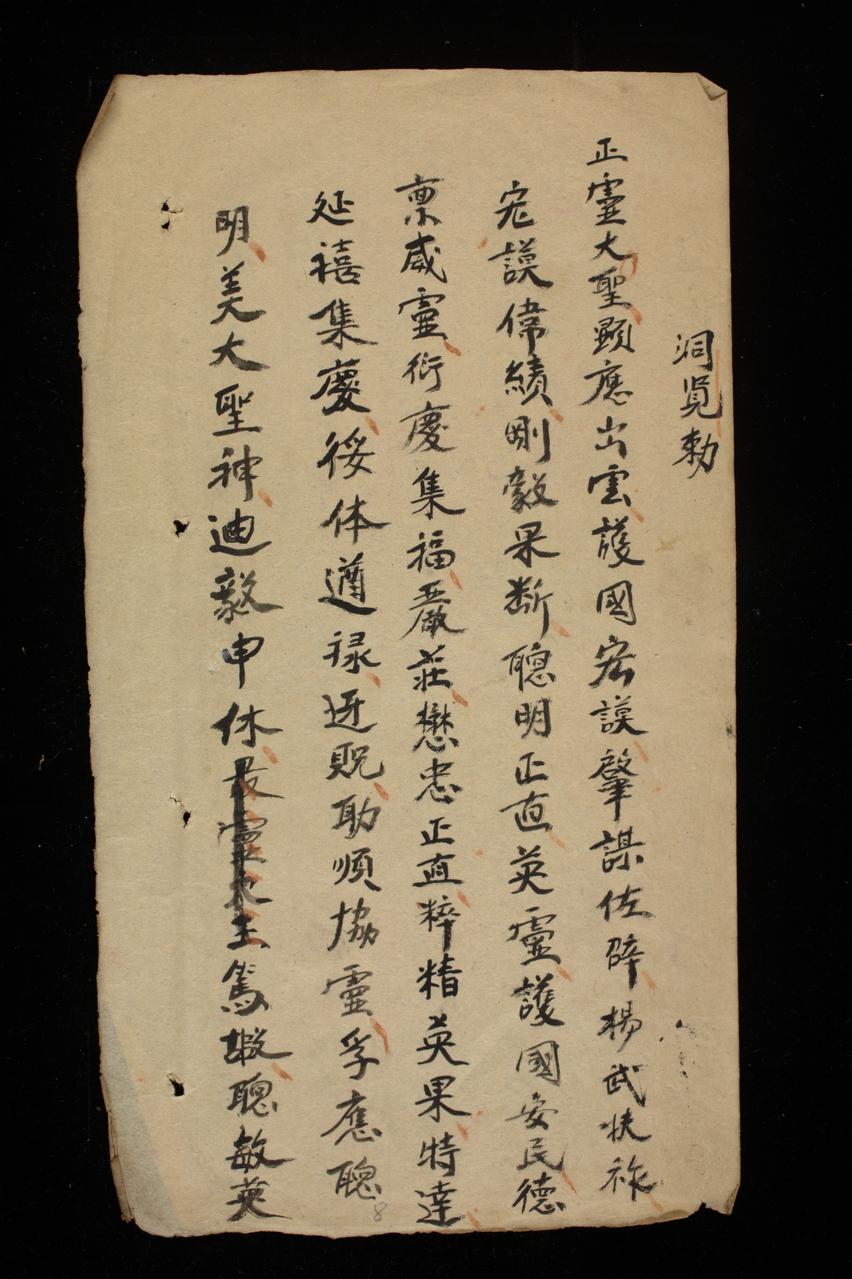 洞覓勅
正靈大聖顯應出雲護國宏謨肇謀佐辟楊武扶祚
宏謨偉績剛毅果断聰明正直英靈護國安民德
稟威靈衍慶集福嚴莊懋忠正直粹精英果特達
延禧集慶綏体遵禄迓貺助順協靈孚應聰
明美大聖神迪毅申休最靈大王篤嘏聰敏英
8